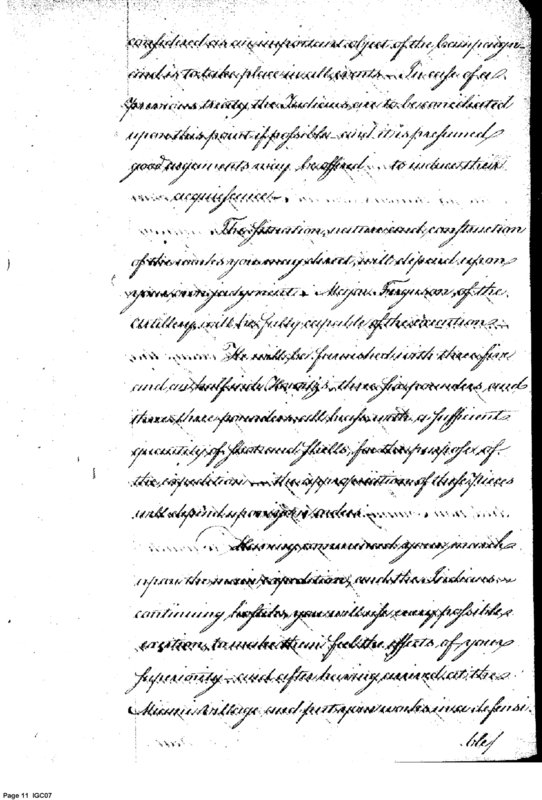 considered as an important object of the Campaign
and is to take place in all events — In case of a
previous treaty the Indians are to be conciliated
upon this point if possible — and it is presumed
good arguments may be offered to induce their
acquiescence —
The situation, nature and construction
of the works you may direct, will depend upon
your own judgement. Major Ferguson of the
Artillery will be fully capable of the execution —
He will be furnished with three five
and an half inch Howitzs, three six pounders and
three three pounders all brass with a sufficient
quantity of shot and shells, for the purposes of
the expedition — the appropriation of these pieces
will depend upon your orders —
Having commenced your march
upon the main expedition, and the Indians
continuing hostile, you will use every possible
exertion to make them feel the effects of your
superiority — and after having arrived at the
Miami Village and put your works in a defensi
ble
Page 11 IGC07